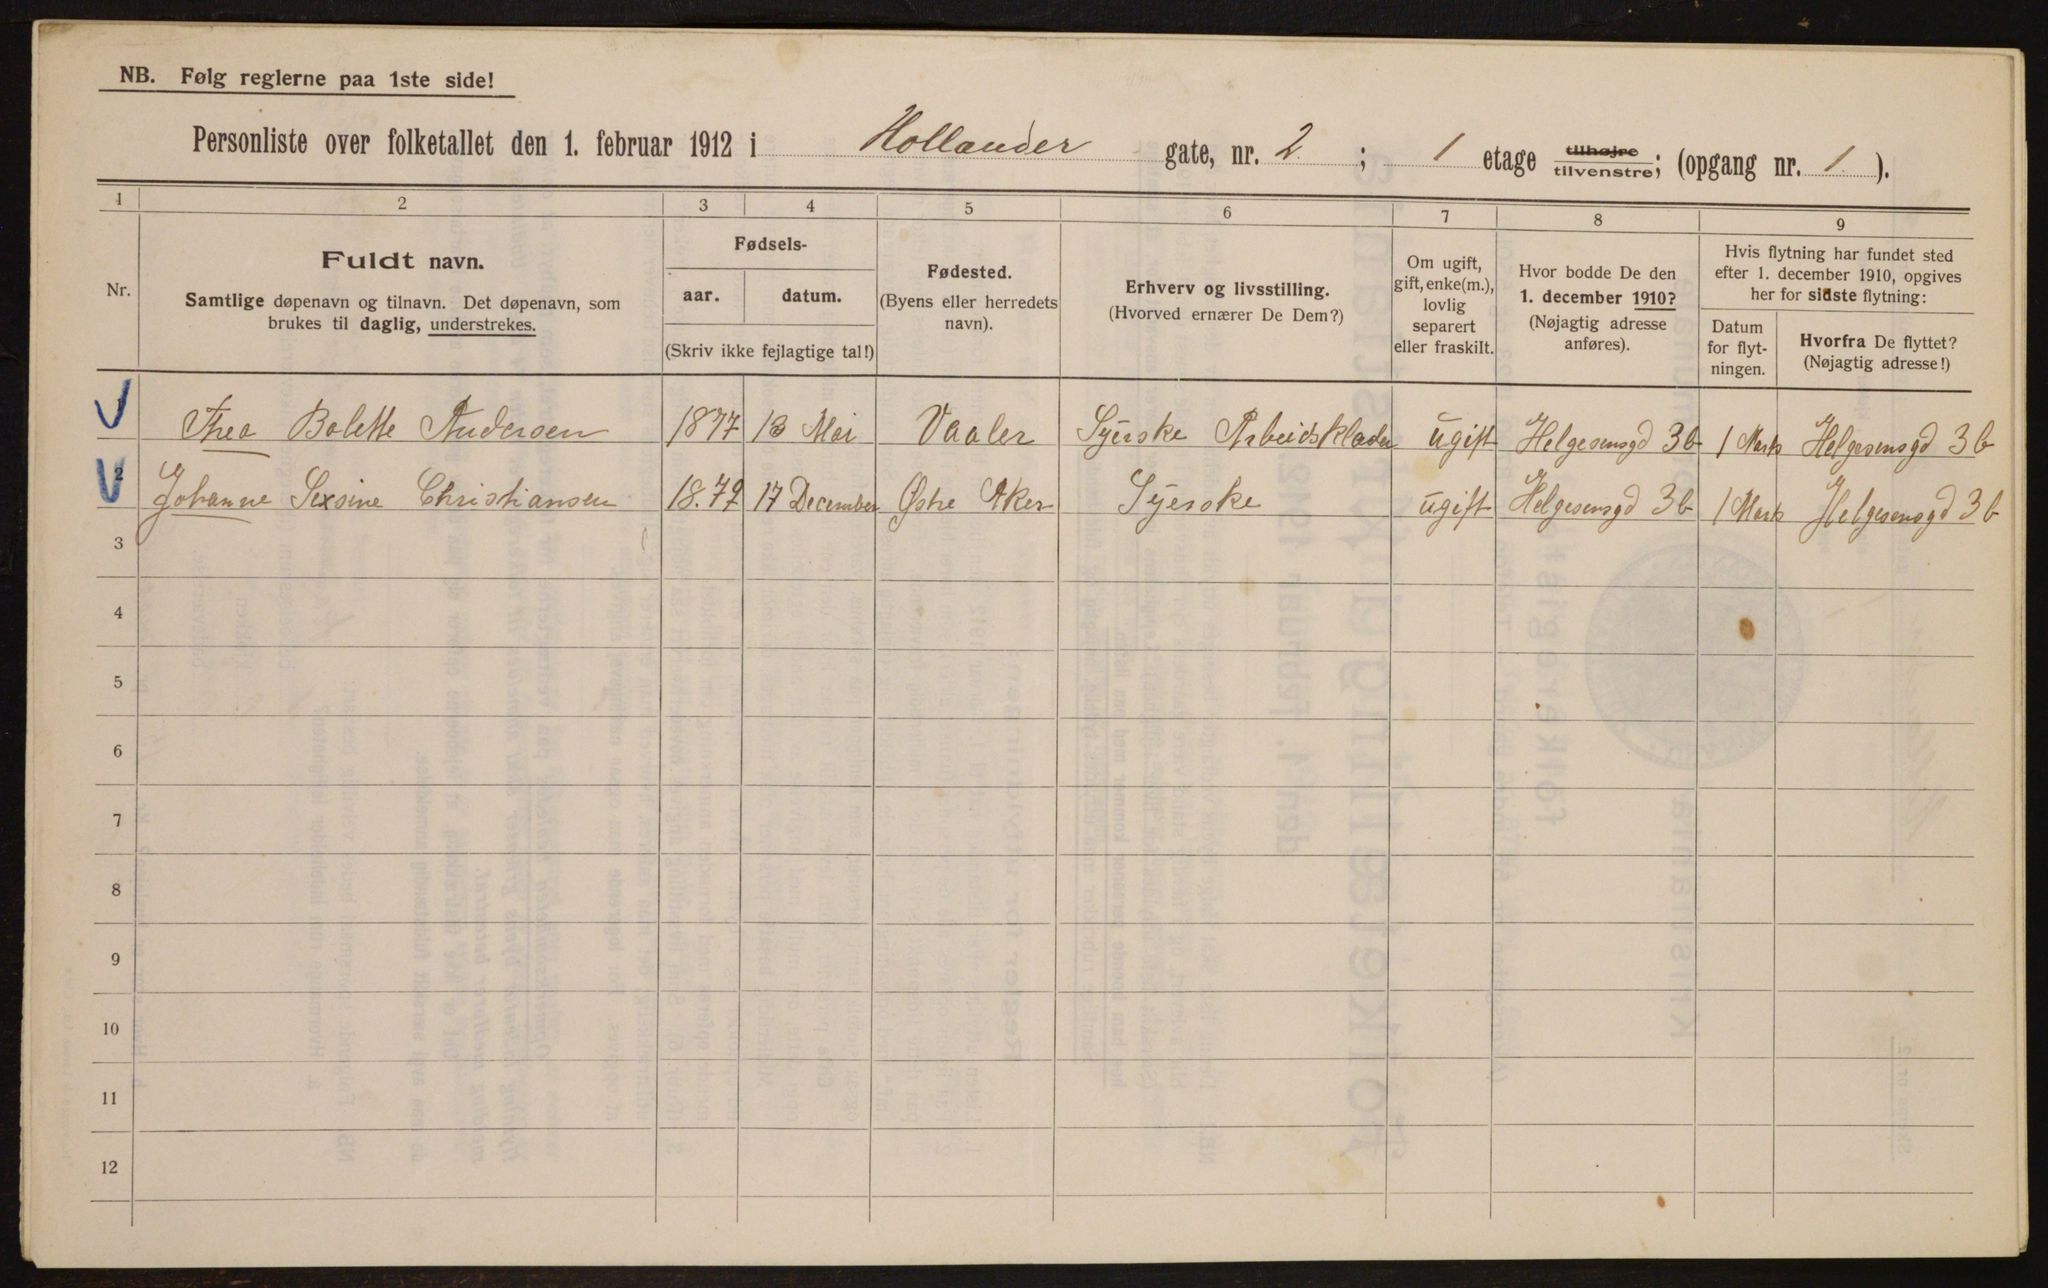 NB. Følg reglerne paa 1ste side!
Personliste over folketallet den 1. februar 1912 i Hollander gate, nr. 2 ; 1 etage tilhøjre tilvenstre; (opgang nr. 1 ).
1 2 3 4 5 6 7 8 9
Nr.
Fuldt navn.
Samtlige døpenavn og tilnavn. Det døpenavn, som
brukes til daglig, understrekes.
Fødsels-
aar. datum.
(Skriv ikke fejlagtige tal!)
Fødested.
(Byens eller herredets
navn).
Erhverv og livsstilling.
(Hvorved ernærer De Dem?)
Om ugift,
gift, enke(m.),
lovlig
separert
eller fraskilt.
Hvor bodde De den
1. december 1910?
(Nøjagtig adresse
anføres).
Hvis flytning har fundet sted
efter 1. december 1910, opgives
her for sidste flytning:
Datum
for flyt-
ningen.
Hvorfra De flyttet?
(Nøjagtig adresse!)
1 Thea Bolette Andersen 1877 13 Mai Vaaler Syerske Arbeidsklæder ugift Helgesensgd 3b 1 Marts Helgesensgd 3b
2 Johanne Sexsine Christiansen 18.72 17 December Østre Aker Syerske ugift Helgesensgd 3b 1 Marts Helgesensgd 3b
3
4
5
6
7
8
9
10
11
12